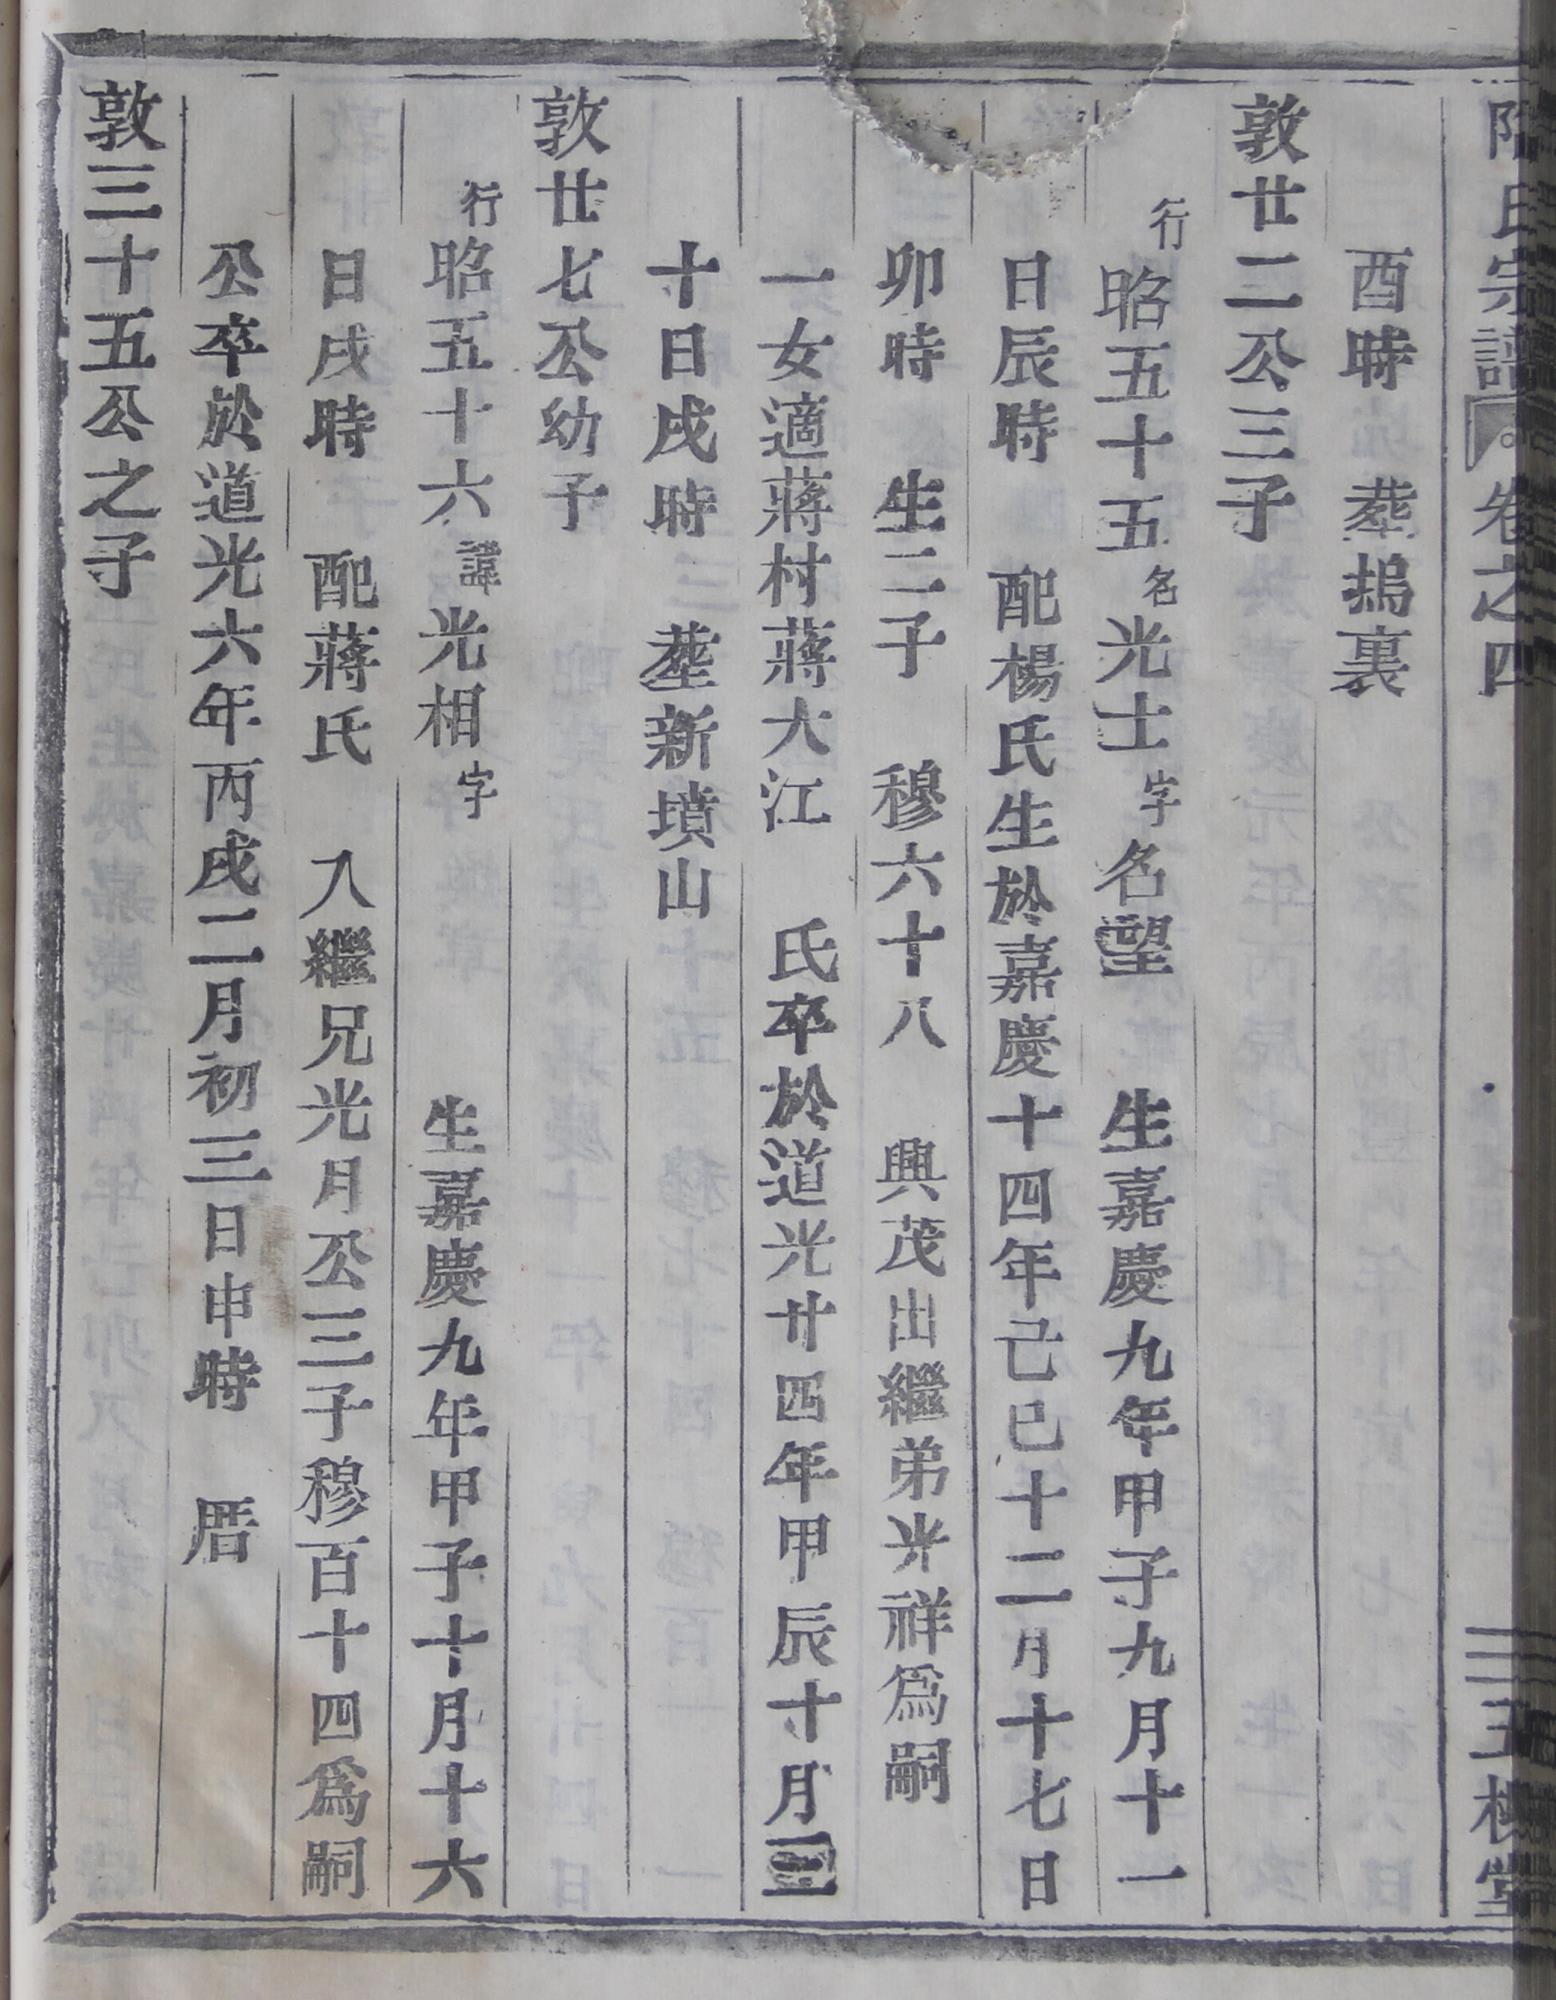 陷氏宗譜 卷之四 三 五槐堂
酉時 葬塢裏
敦廿二公三子
行昭五十五名光士字名望 生嘉慶九年甲子九月十一
日辰時 配楊氏生於嘉慶十四年己巳十二月十七日
卯時 生二子 穆六十八 興茂出繼弟光祥爲嗣
一女適蔣村蔣大江 氏卒於道光廿四年甲辰十月
十日戌時 葬新墳山
敦廿七公幼子
行昭五十六諱光相字 生嘉慶九年甲子十月十六
日戌時 配蔣氏 入繼兄光月公三子穆百十四爲嗣
公卒於道光六年丙戌二月初三日申時 厝
敦三十五公之子